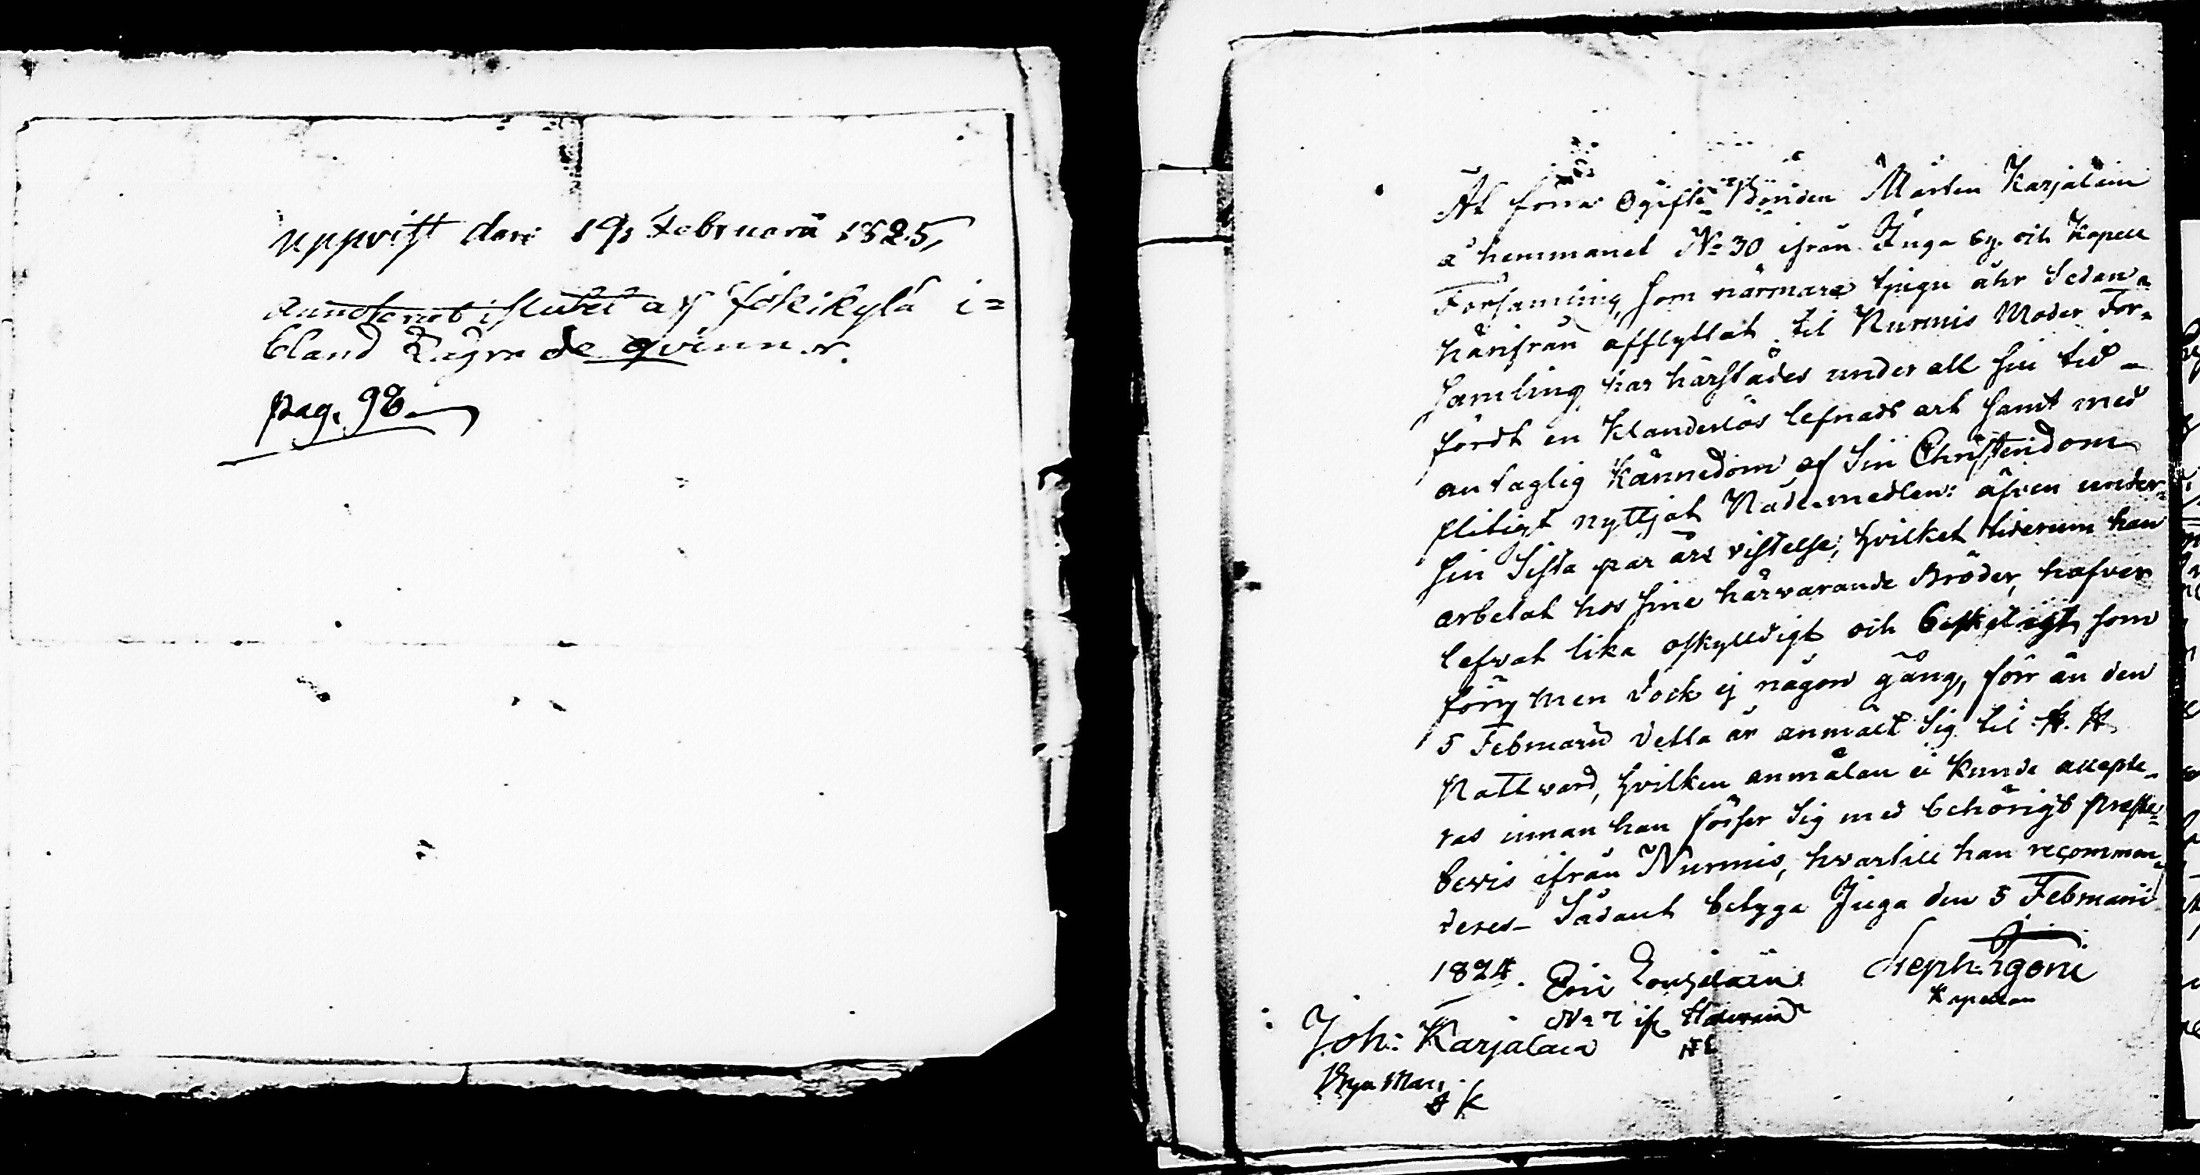 uppvist den 19. Februarii 1825,
ay Jokikylä i=
bland Lägre de qvinnor.
pag. 98
At förra Ogifte Bonden Mårten Karjalain
å hemmanet No 30 ifrån Juga by och Kapell
Församling, som närmare tjugu åhr Sedan
härifrån afflyttat til Nurmis Moder För-
samling, har härstädes under all sin tid
fördt en Klanderlös lefnads art samt med
antaglig Kännedom af Sin Christendom
flitigt nyttjat Nademedlen: äfven under
sin Sista par års vistelse, hvilket tiderum han
arbetat hos sine härvarande Bröder, hafver
lefvat lika oskyldigt och beskedligt som
förr, men dock ej någon gång, förr än den
5 Februarii detta år anmält Sig til H. H.
Nattvard, hvilken anmälan ei kunde accepte-
ras innan han förser Sig med behörigt preste-
bevis ifrån Nurmis, hvartill han recommen-
deres- Sådant betyga Juga den 5 Februarii
1824. Eric
Steph. Ugoni
Kapellan
No 7
Joh: Karjalain